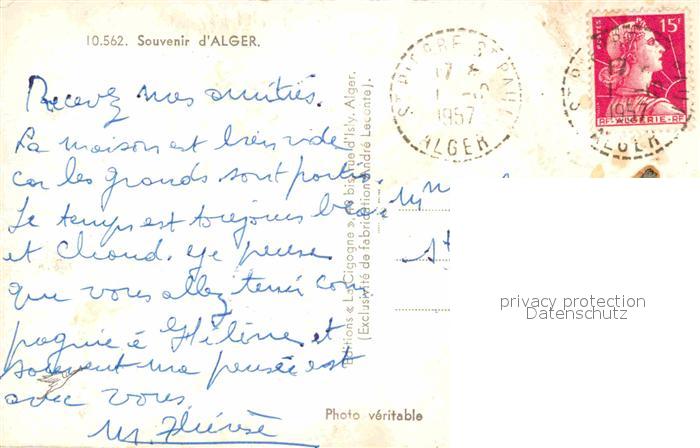 10.562. Souvenir d'ALGER.
Recevez mes amitiés.
La maison est bien vide
car les grands sont partis.
Le temps est toujours beau
et chaud. Je pense
que vous allez tenir com
pagnie à Hélène et
souvent ma pensée est
avec vous.
M. Thérèse
Editions « La Cigogne », 62 bis rue d'Isly. Alger.
(Exclusivité de fabrication André Leconte).
Photo véritable
ST PIERRE ST PAUL
17
1957
ALGER
POSTES
15F
RF-ALGERIE-RF
17
1957
ALGER
privacy protection
Datenschutz